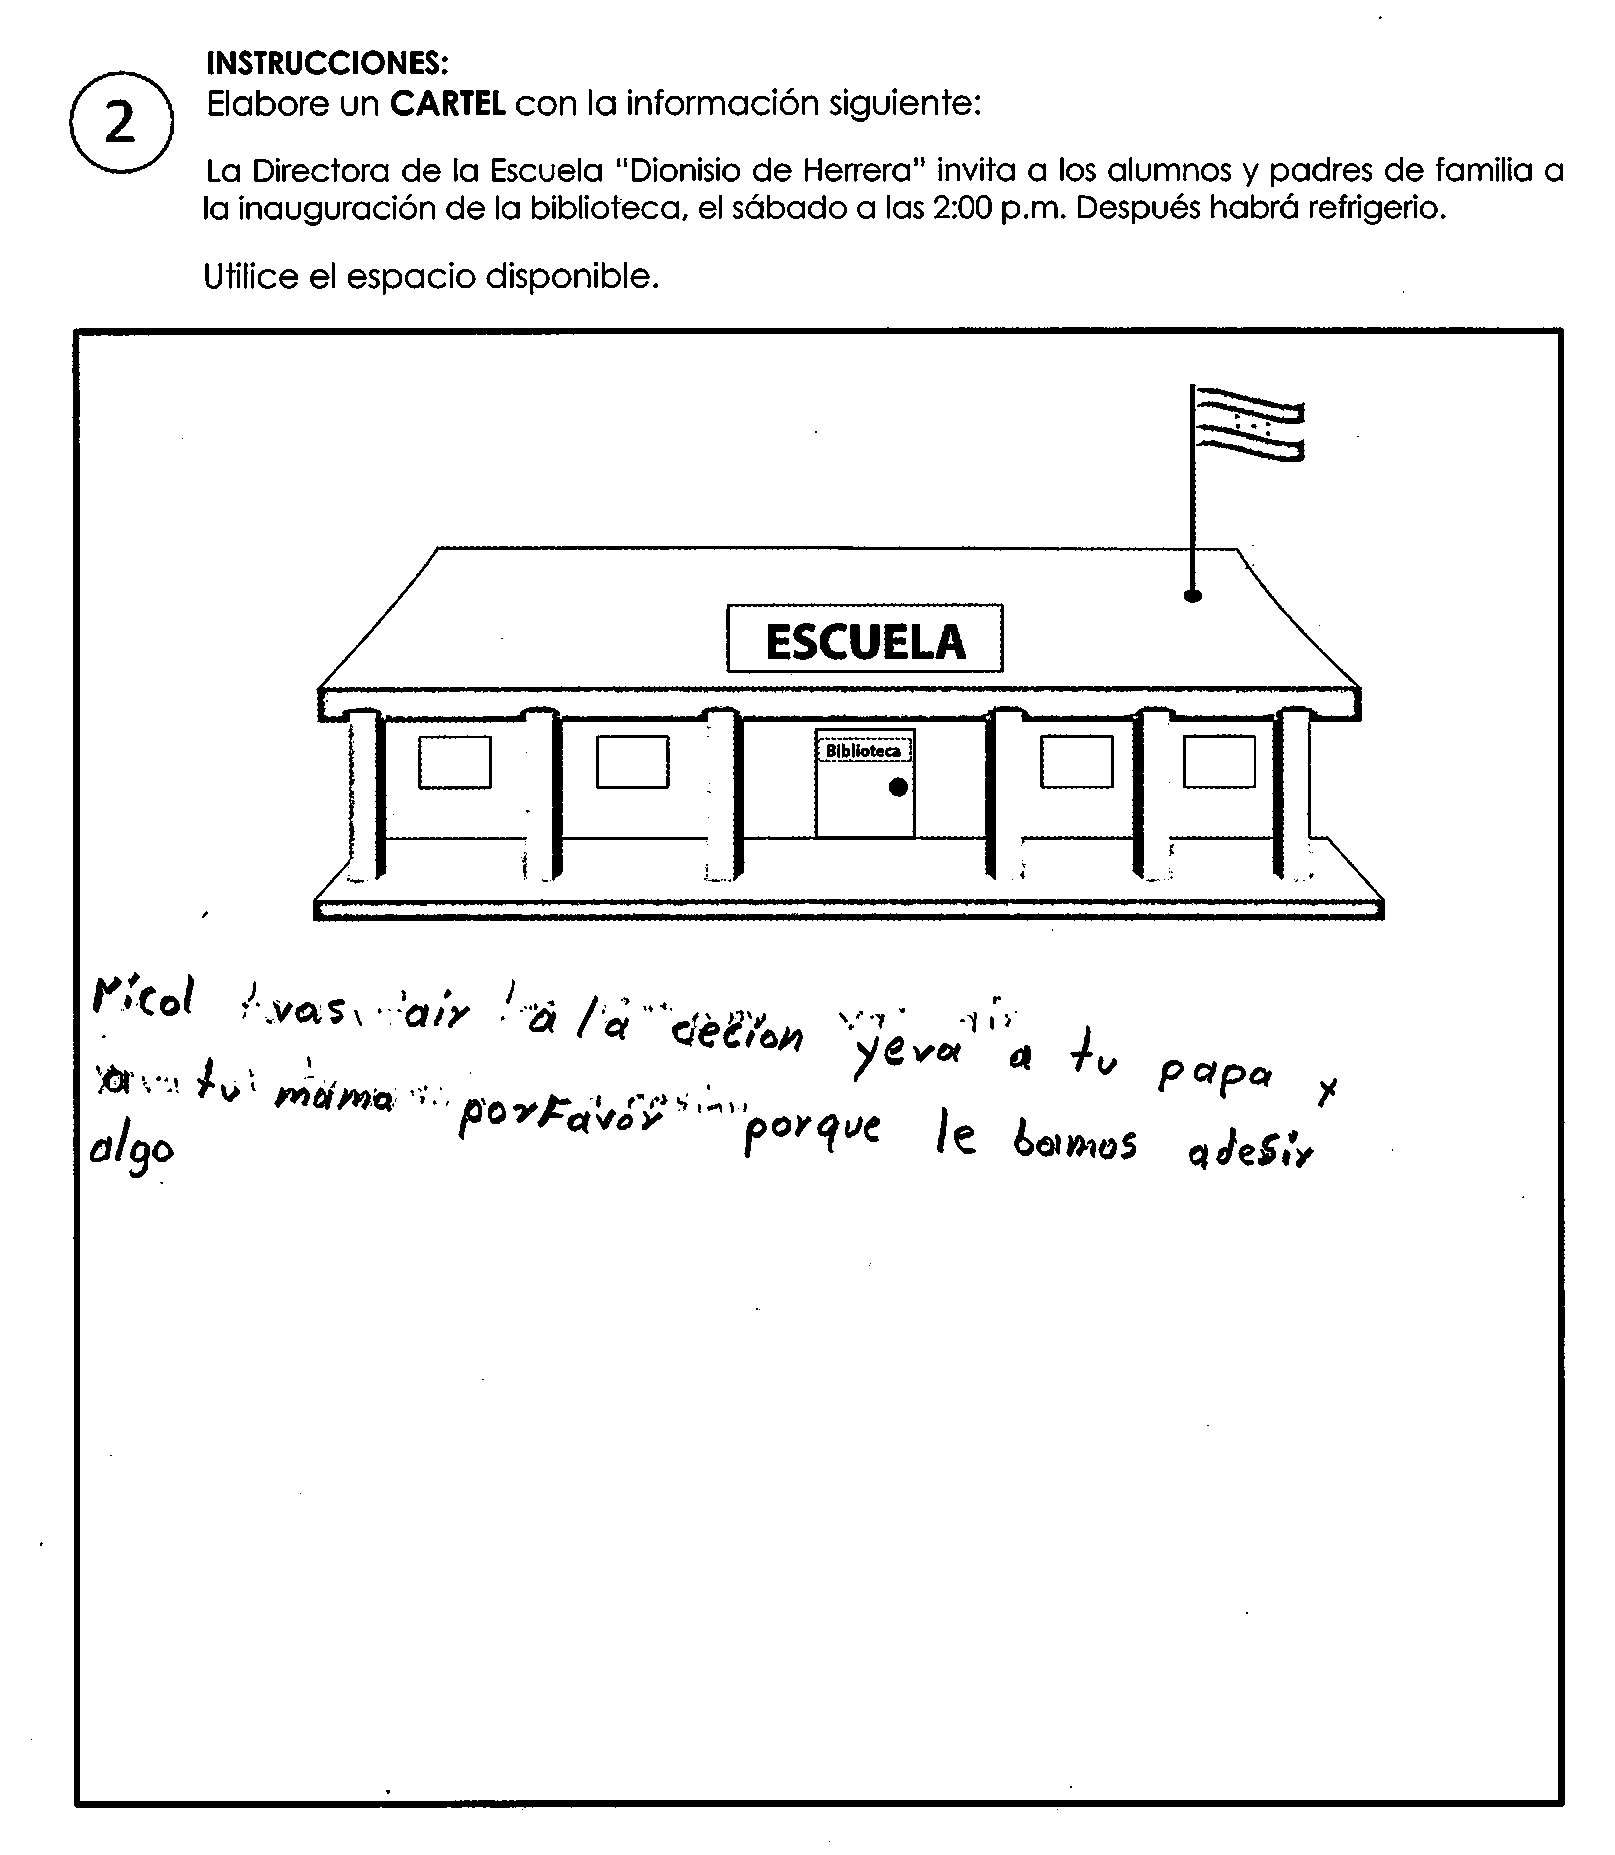 INSTRUCCIONES:
2
Elabore un CARTEL con la información siguiente:
La Directora de la Escuela "Dionisio de Herrera" invita a los alumnos y padres de familia a
la inauguración de la biblioteca, el sábado a las 2:00 p.m. Después habrá refrigerio.
Utilice el espacio disponible.
ESCUELA
Biblioteca
Nicol vas air a la decion yeva a tu papa y
a tu mama porFavor porque le bamos adesir
algo